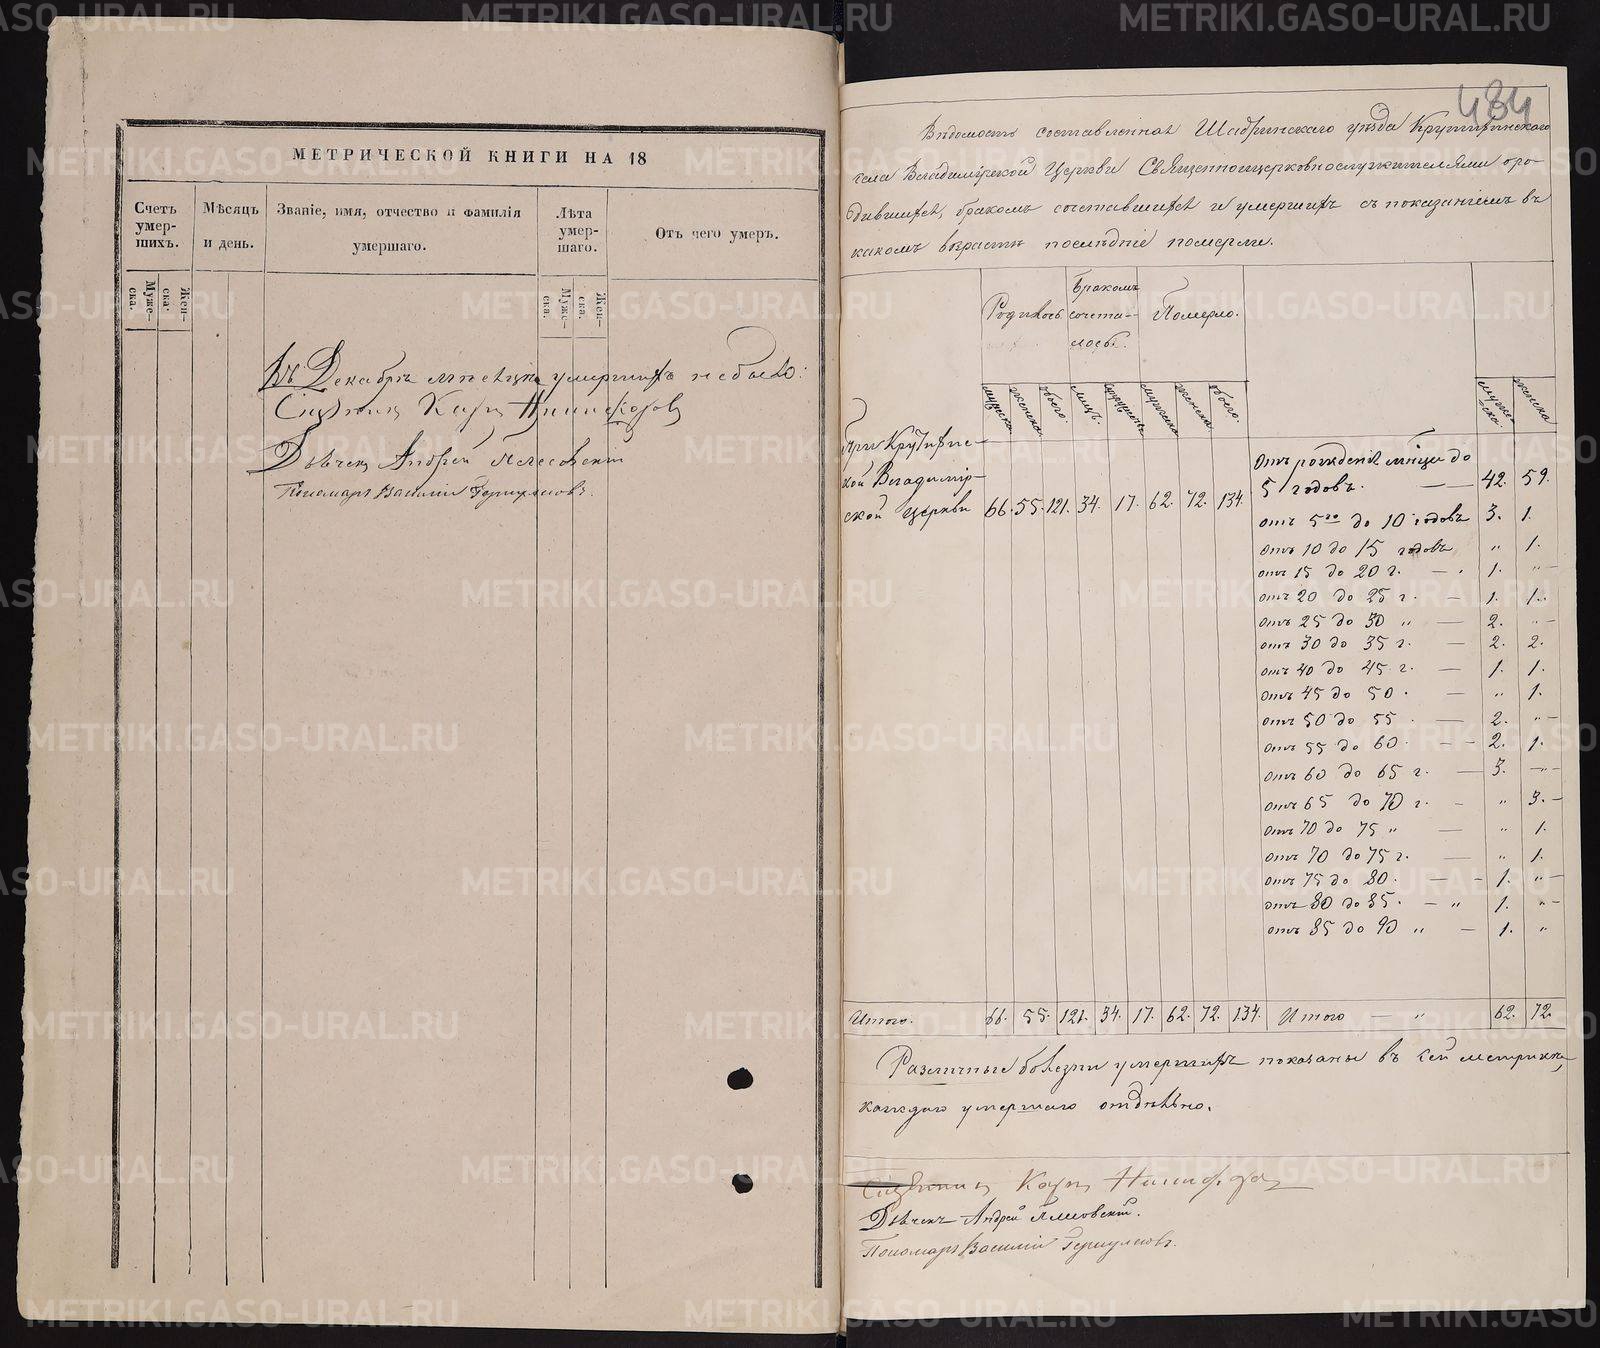 МЕТРИЧЕСКОЙ КНИГИ НА 18
Счетъ умер-шихъ.
Мѣсяцъ и день.
Званіе, имя, отчество и фамилія умершаго.
Лѣта умер-шаго.
Отъ чего умеръ.
Муже-ска.
Жен-ска.
Муже-ска.
Жен-ска.
Въ Декабрѣ мѣсяцѣ умершихъ небыло:
Андрей
Пономарь Василій
484
Вѣдомость составленная Шадринскаго уѣзда Крутихинскаго
села Владимірской Церкви Священноицерковнослужителями оро-
дившихся, бракомъ сочетавшихся и умершихъ съ показаніемъ въ
какомъ возрастѣ послѣдніе померли.
Родилось.
Бракомъ сочета-лось.
Померло.
мужска. женска. обоего. мужска. женска. обоего.
мужеска. женска
При Крутихин-
ской Владимір-
ской церкви 66. 55. 121. 34. 17. 62. 72. 134.
Отъ рожденія до
5 годовъ. — 42. 59.
отъ 5го до 10 годовъ 3. 1.
отъ 10 до 15 годовъ " 1.
отъ 15 до 20 г. — 1. "
отъ 20 до 25 г. — 1. 1.
отъ 25 до 30 " — 2. "
отъ 30 до 35 г. — 2. 2.
отъ 40 до 45 г. — 1. 1.
отъ 45 до 50. — " 1.
отъ 50 до 55 — 2. "
отъ 55 до 60. — 2. 1.
отъ 60 до 65 г. — 3. "
отъ 65 до 70 г. — " 3.
отъ 70 до 75 " — " 1.
отъ 70 до 75 г. — " 1.
отъ 75 до 80. — 1. "
отъ 80 до 85. — " 1. "
отъ 85 до 90 " — 1. "
Итого. 66. 55. 121. 34. 17. 62. 72. 134. Итого — " 62. 72.
Различные болезни умершихъ показаны въ сей метрикѣ,
каждаго умершаго отдѣльно.
Андрей
Пономарь Василій
METRIKI.GASO-URAL.RU